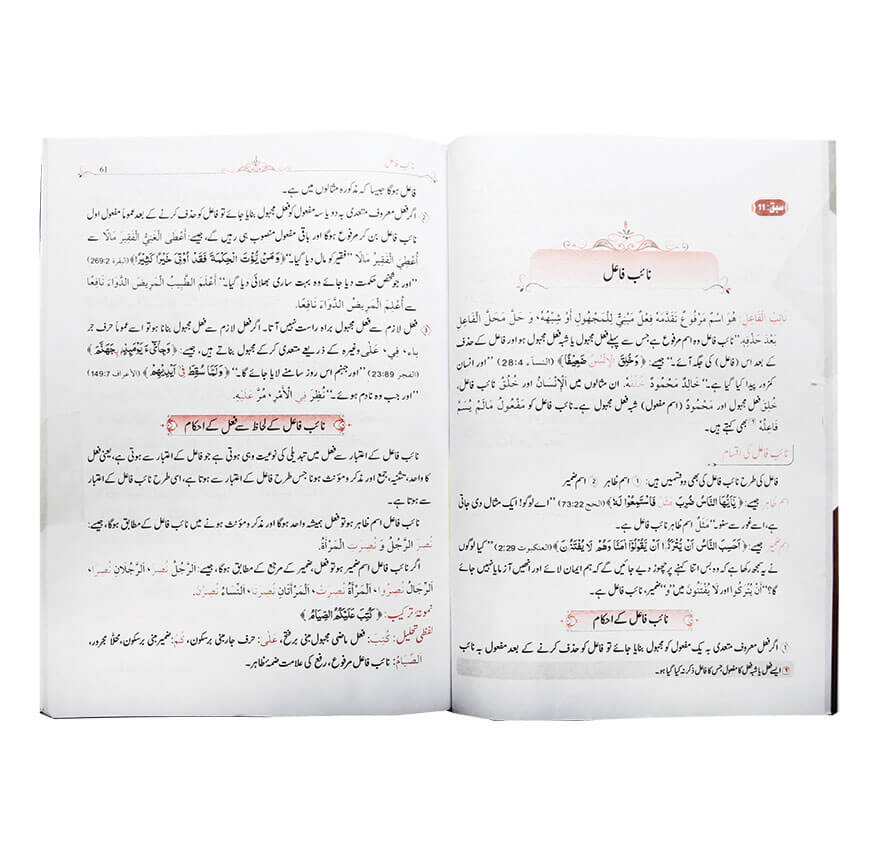 سبق: 11
نائب فاعل
نائبُ الْفَاعِلِ هُوَ اسْمٌ مَرْفُوعٌ تَقَدَّمَهُ فِعْلٌ مَبْنِيٌّ لِلْمَجْهُولِ أَوْ شِبْهُهُ، وَ حَلَّ مَحَلَّ الْفَاعِلِ
بَعْدَ حَذْفِهِ. ’’نائب فاعل وہ اسم مرفوع ہے جس سے پہلے فعل مجہول یا شبہ فعل مجہول ہو اور فاعل کے حذف
کے بعد اس (فاعل) کی جگہ آئے۔‘‘ جیسے: ﴿وَخُلِقَ الْإِنْسٰنُ ضَعِيفًا﴾ (النسآء 28:4) ’’اور انسان
کمزور پیدا کیا گیا ہے۔‘‘ خَالِدٌ مَحْمُودٌ خُلُقُهُ. ان مثالوں میں اَلْإِنْسَانُ اور خُلُقُ نائب فاعل،
خُلِقَ فعل مجہول اور مَحْمُودٌ (اسم مفعول) شبہ فعل مجہول ہے۔ نائب فاعل کو مَفْعُولُ مَالَمْ يُسَمَّ
فَاعِلُهُ بھی کہتے ہیں۔
نائب فاعل کی اقسام
فاعل کی طرح نائب فاعل کی بھی دو قسمیں ہیں: ① اسم ظاہر ② اسم ضمیر
اسم ظاہر جیسے: ﴿يٰٓاَيُّهَا النَّاسُ ضُرِبَ مَثَلٌ فَاسْتَمِعُوْا لَهٗ﴾ (الحج 73:22) ’’اے لوگو! ایک مثال دی جاتی
ہے، اسے غور سے سنو۔‘‘ مَثَلٌ اسم ظاہر نائب فاعل ہے۔
اسم ضمیر جیسے: ﴿اَحَسِبَ النَّاسُ اَنْ يُّتْرَكُوْٓا اَنْ يَّقُوْلُوْٓا اٰمَنَّا وَهُمْ لَا يُفْتَنُوْنَ﴾ (العنکبوت 2:29) ’’کیا لوگوں
نے یہ سمجھ رکھا ہے کہ وہ بس اتنا کہنے پر چھوڑ دیے جائیں گے کہ ہم ایمان لائے اور انھیں آزمایا نہیں جائے
گا؟‘‘ أَنْ يُتْرَكُوا اور لَا يُفْتَنُونَ میں ’’و‘‘ ضمیر، نائب فاعل ہے۔
نائب فاعل کے احکام
① اگر فعل معروف متعدی بہ یک مفعول کو مجہول بنایا جائے تو فاعل کو حذف کرنے کے بعد مفعول بہ نائب
ایسے فعل یا شبہ فعل کا مفعول جس کا فاعل ذکر نہ کیا گیا ہو۔
نائب فاعل 61
فاعل ہوگا جیسا کہ مذکورہ مثالوں میں ہے۔
② اگر فعل معروف متعدی بہ دو یا سہ مفعول کو فعل مجہول بنایا جائے تو فاعل کو حذف کرنے کے بعد عموماً مفعول اول
نائب فاعل بن کر مرفوع ہوگا اور باقی مفعول منصوب ہی رہیں گے، جیسے: أَعْطَى الْغَنِيُّ الْفَقِيرَ مَالًا سے
أُعْطِيَ الْفَقِيرُ مَالًا ’’فقیر کو مال دیا گیا۔‘‘ ﴿وَمَنْ يُّؤْتَ الْحِكْمَةَ فَقَدْ اُوْتِيَ خَيْرًا كَثِيْرًا﴾ (البقرة 269:2)
’’اور جو شخص حکمت دیا جائے وہ بہت ساری بھلائی دیا گیا۔‘‘ أَعْلَمَ الطَّبِيبُ الْمَرِيضَ الدَّوَاءَ نَافِعًا
سے أُعْلِمَ الْمَرِيضُ الدَّوَاءَ نَافِعًا.
③ فعل لازم سے فعل مجہول براہ راست نہیں آتا۔ اگر فعل لازم سے فعل مجہول بنانا ہو تو اسے عموماً حرف جر
باء، فِي، عَلَى وغیرہ کے ذریعے متعدی کرکے مجہول بناتے ہیں، جیسے: ﴿وَجِايْٓءَ يَوْمَىِٕذٍۭ بِجَهَنَّمَ﴾
(الفجر 23:89) ’’اور جہنم اس روز سامنے لایا جائے گا۔‘‘ ﴿وَلَمَّا سُقِطَ فِيْٓ اَيْدِيْهِمْ﴾ (الأعراف 149:7)
’’اور جب وہ نادم ہوئے۔‘‘ نُظِرَ فِي الْأَمْرِ، مُرَّ عَلَيْهِ.
نائب فاعل کے لحاظ سے فعل کے احکام
نائب فاعل کے اعتبار سے فعل میں تبدیلی کی نوعیت وہی ہوتی ہے جو فاعل کے اعتبار سے ہوتی ہے، یعنی فعل
کا واحد، تثنیہ، جمع اور مذکر و مؤنث ہونا جس طرح فاعل کے اعتبار سے ہوتا ہے، اسی طرح نائب فاعل کے اعتبار
سے ہوتا ہے۔
نائب فاعل اسم ظاہر ہو تو فعل ہمیشہ واحد ہوگا اور مذکر و مؤنث ہونے میں نائب فاعل کے مطابق ہوگا، جیسے:
نُصِرَ الرَّجُلُ وَ نُصِرَتِ الْمَرْأَةُ.
اگر نائب فاعل اسم ضمیر ہو تو فعل، ضمیر کے مرجع کے مطابق ہوگا، جیسے: اَلرَّجُلُ نُصِرَ، اَلرَّجُلَانِ نُصِرَا،
اَلرِّجَالُ نُصِرُوا، اَلْمَرْأَةُ نُصِرَتْ، اَلْمَرْأَتَانِ نُصِرَتَا، اَلنِّسَاءُ نُصِرْنَ.
نمونۂ ترکیب: ﴿كُتِبَ عَلَيْكُمُ الصِّيَامُ﴾
لفظی تحلیل: كُتِبَ: فعل ماضی مجہول مبنی بر فتح، عَلَى: حرف جار مبنی برسکون، كُمْ: ضمیر مبنی برسکون، محلا مجرور،
اَلصِّيَامُ: نائب فاعل مرفوع، رفع کی علامت ضمۂ ظاہر۔